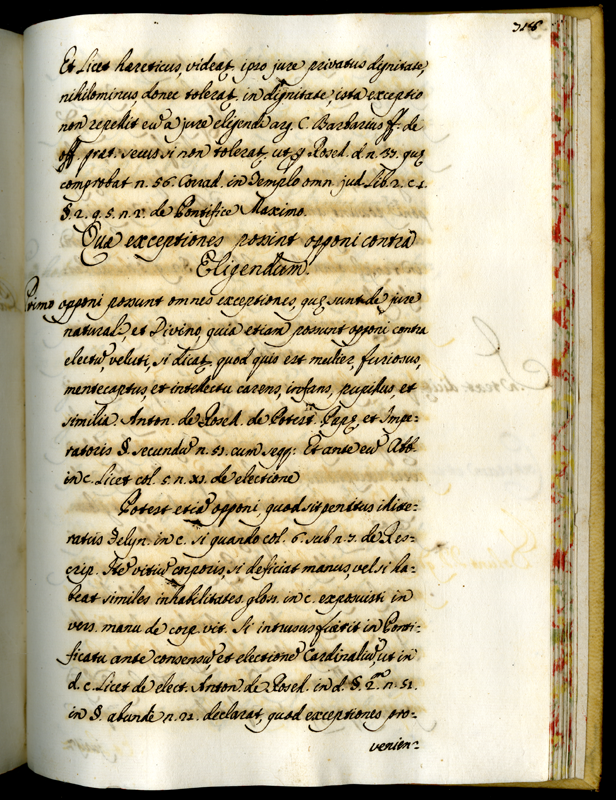 316
Et Licet haereticus, videat, ipso jure privatus dignitate,
nihilominus, donec tolerat, in dignitate, ista exceptio
non repellit eum a jure eligendi arg. C. Barbarius ff. de
off. praet. secus si non tolerat, ut Rosed. d. n. 33. quem
comprobat n. 56. Corrad. in Templo omn. jud. Lib. 2. c. 1.
§. 2. q. 5. n. 2. de Pontifice Maximo.
Quae exceptiones possint opponi contra
Eligendum.
Primo opponi possunt omnes exceptiones, quae sunt de jure
naturali, et Divino, quia etiam possunt opponi contra
electum, veluti, si dicat, quod quis est mulier, furiosus,
mentecaptus, et intellectu carens, infans, pupillus, et
similia. Anton. de Rosed. de Potest. Papae, et Impe-
ratoris §. secundum n. 51. cum seqq: Et ante eum Abb.
in c. Licet col. 5. n. XI. de electione
Potest etiam opponi, quod sit penitus illite-
ratus Felyn. in c. si quando col. 6. sub n. 7. de Res-
crip. Item vitium corporis, si deficiat manus, vel si ha-
beat similes inhabilitates. gloss. in c. exposuisti in
vers. manu de corp. vit. Si intrusus fuerit in Ponti-
ficatu ante consensum et electionem Cardinalium, ut in
d. c. Licet de elect. Anton de Rosed. in d. §. 2. n. 51.
in §. abunde n. 22. declarat, quod exceptiones pro-
venien-